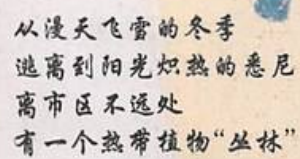 从漫天飞雪的冬季
逃离到阳光炽热的悉尼
离市区不远处
有一个热带植物“丛林”